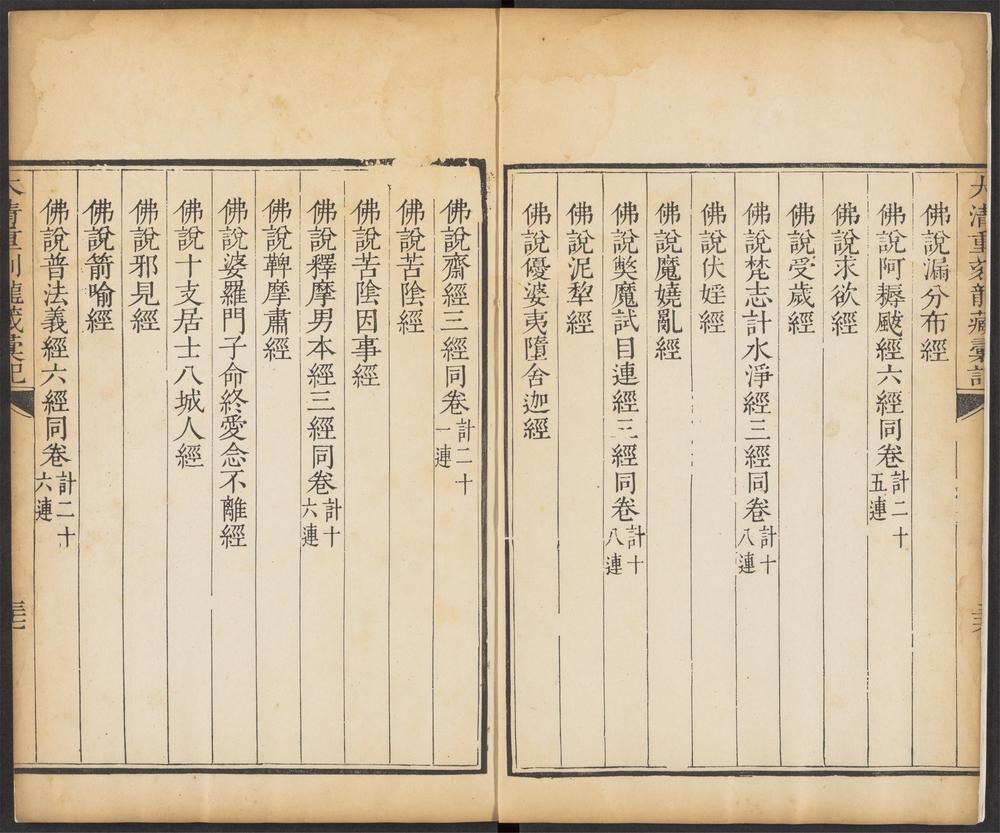 大清重刻龍藏彙記
佛說漏分布經
佛說阿耨颰經六經同卷計二十五連
佛說求欲經
佛說受歲經
佛說梵志計水淨經三經同卷計十八連
佛說伏婬經
佛說魔嬈亂經
佛說弊魔試目連經三經同卷計十八連
佛說泥犁經
佛說優婆夷墮舍迦經
佛說齋經三經同卷計二十一連
佛說苦陰經
佛說苦陰因事經
佛說釋摩男本經三經同卷計十六連
佛說鞞摩肅經
佛說婆羅門子命終愛念不離經
佛說十支居士八城人經
佛說邪見經
佛說箭喻經
佛說普法義經六經同卷計二十六連
大清重刻龍藏彙記